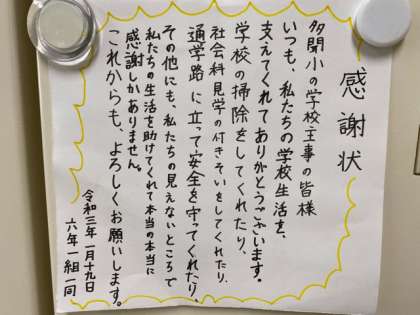 感謝状
多聞小の学校主事の皆様
いつも、私たちの学校生活を、
支えてくれてありがとうございます。
学校の掃除をしてくれたり、
社会科見学の付きそいをしてくれたり、
通学路に立って安全を守ってくれたり、
その他にも、私たちの見えないところで
私たちの生活を助けてくれて本当の本当に
感謝しかありません。
これからも、よろしくお願いします。
令和三年一月十九日
六年一組一同